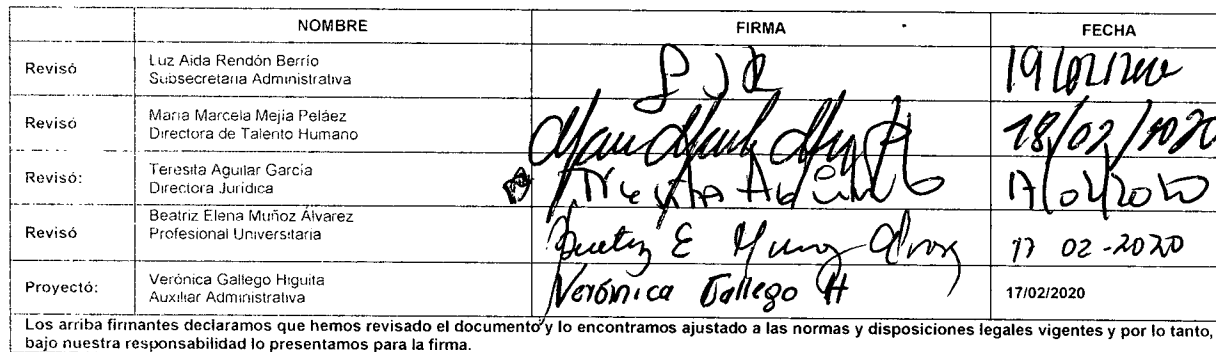 NOMBRE FIRMA FECHA
Revisó Luz Aida Rendón Berrío
Subsecretaria Administrativa 19/02/2020
Revisó Maria Marcela Mejía Peláez
Directora de Talento Humano 18/02/2020
Revisó: Teresita Aguilar García
Directora Jurídica 17/02/2020
Revisó Beatriz Elena Muñoz Álvarez
Profesional Universitaria Beatriz E Muñoz Alvarez 17 02-2020
Proyectó: Verónica Gallego Higuita
Auxiliar Administrativa Verónica Gallego H 17/02/2020
Los arriba firmantes declaramos que hemos revisado el documento y lo encontramos ajustado a las normas y disposiciones legales vigentes y por lo tanto,
bajo nuestra responsabilidad lo presentamos para la firma.